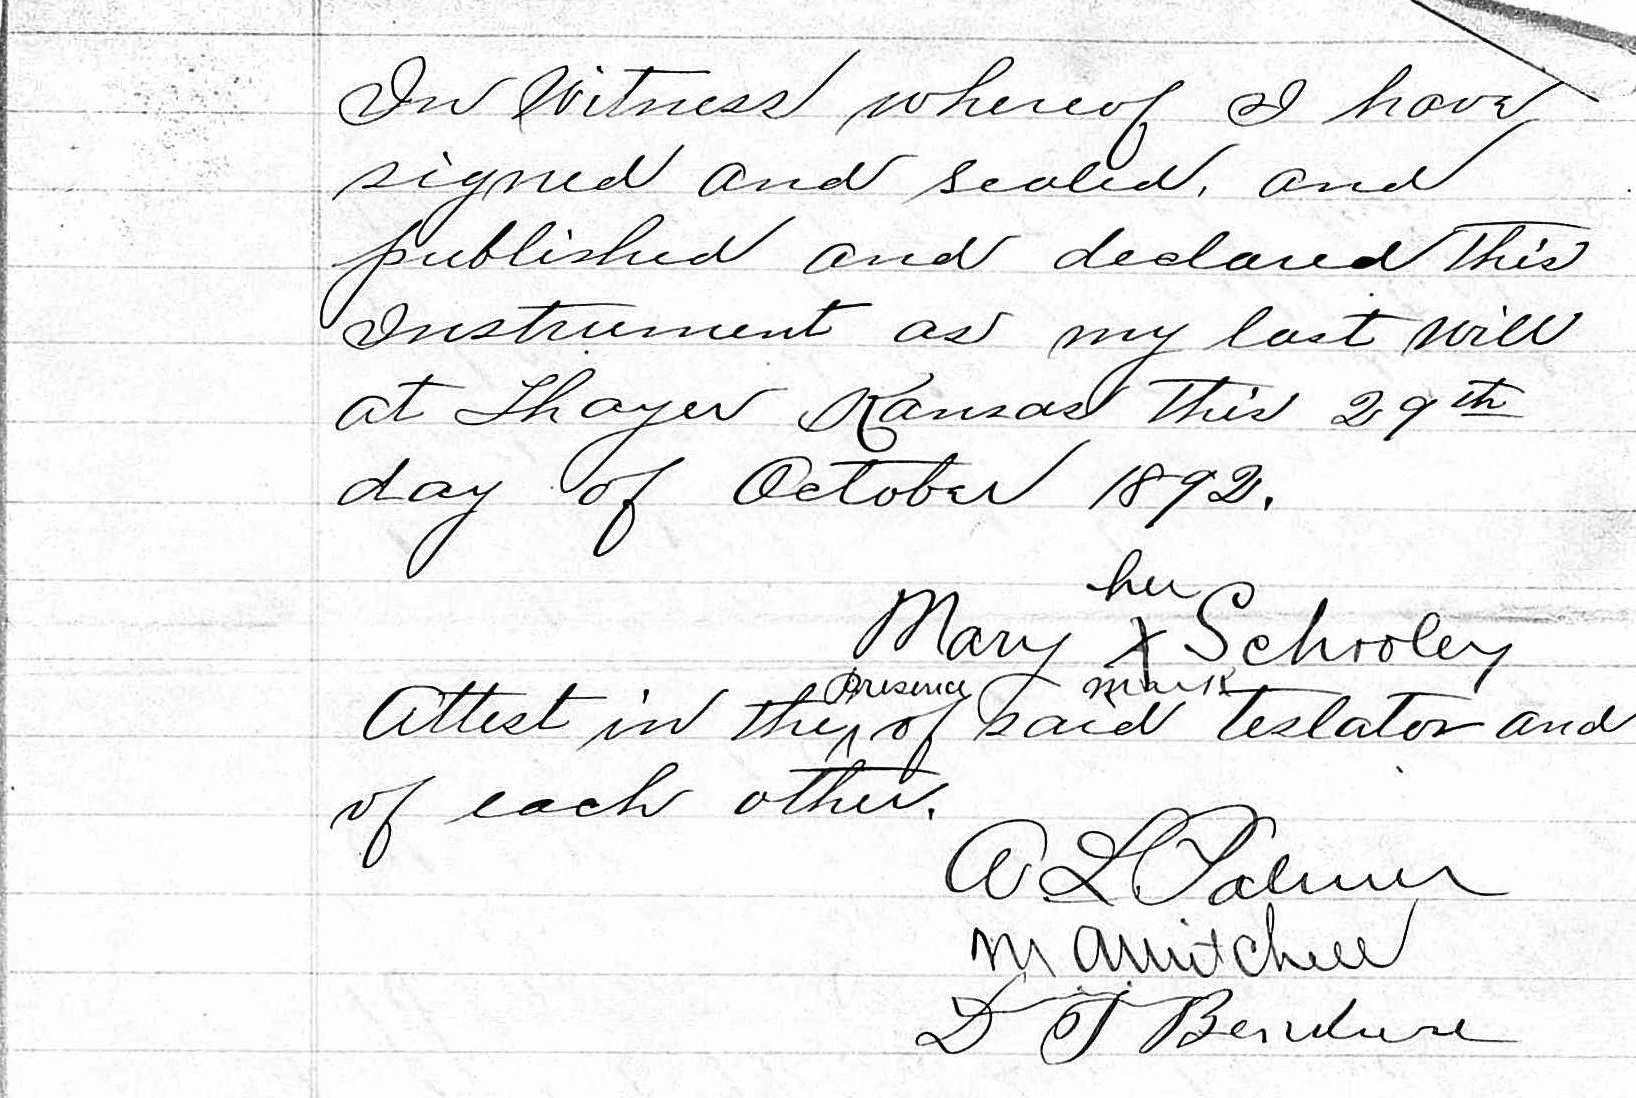 In Witness whereof I have
signed and sealed, and
published and declared This
Instrument as my last Will
at Thayer Kansas This 29th
day of October 1892.
her
Mary X Schooley
mark
presence
Attest in the ^ of said testator and
of each other.
A L Palmer
M A Mitchell
D T